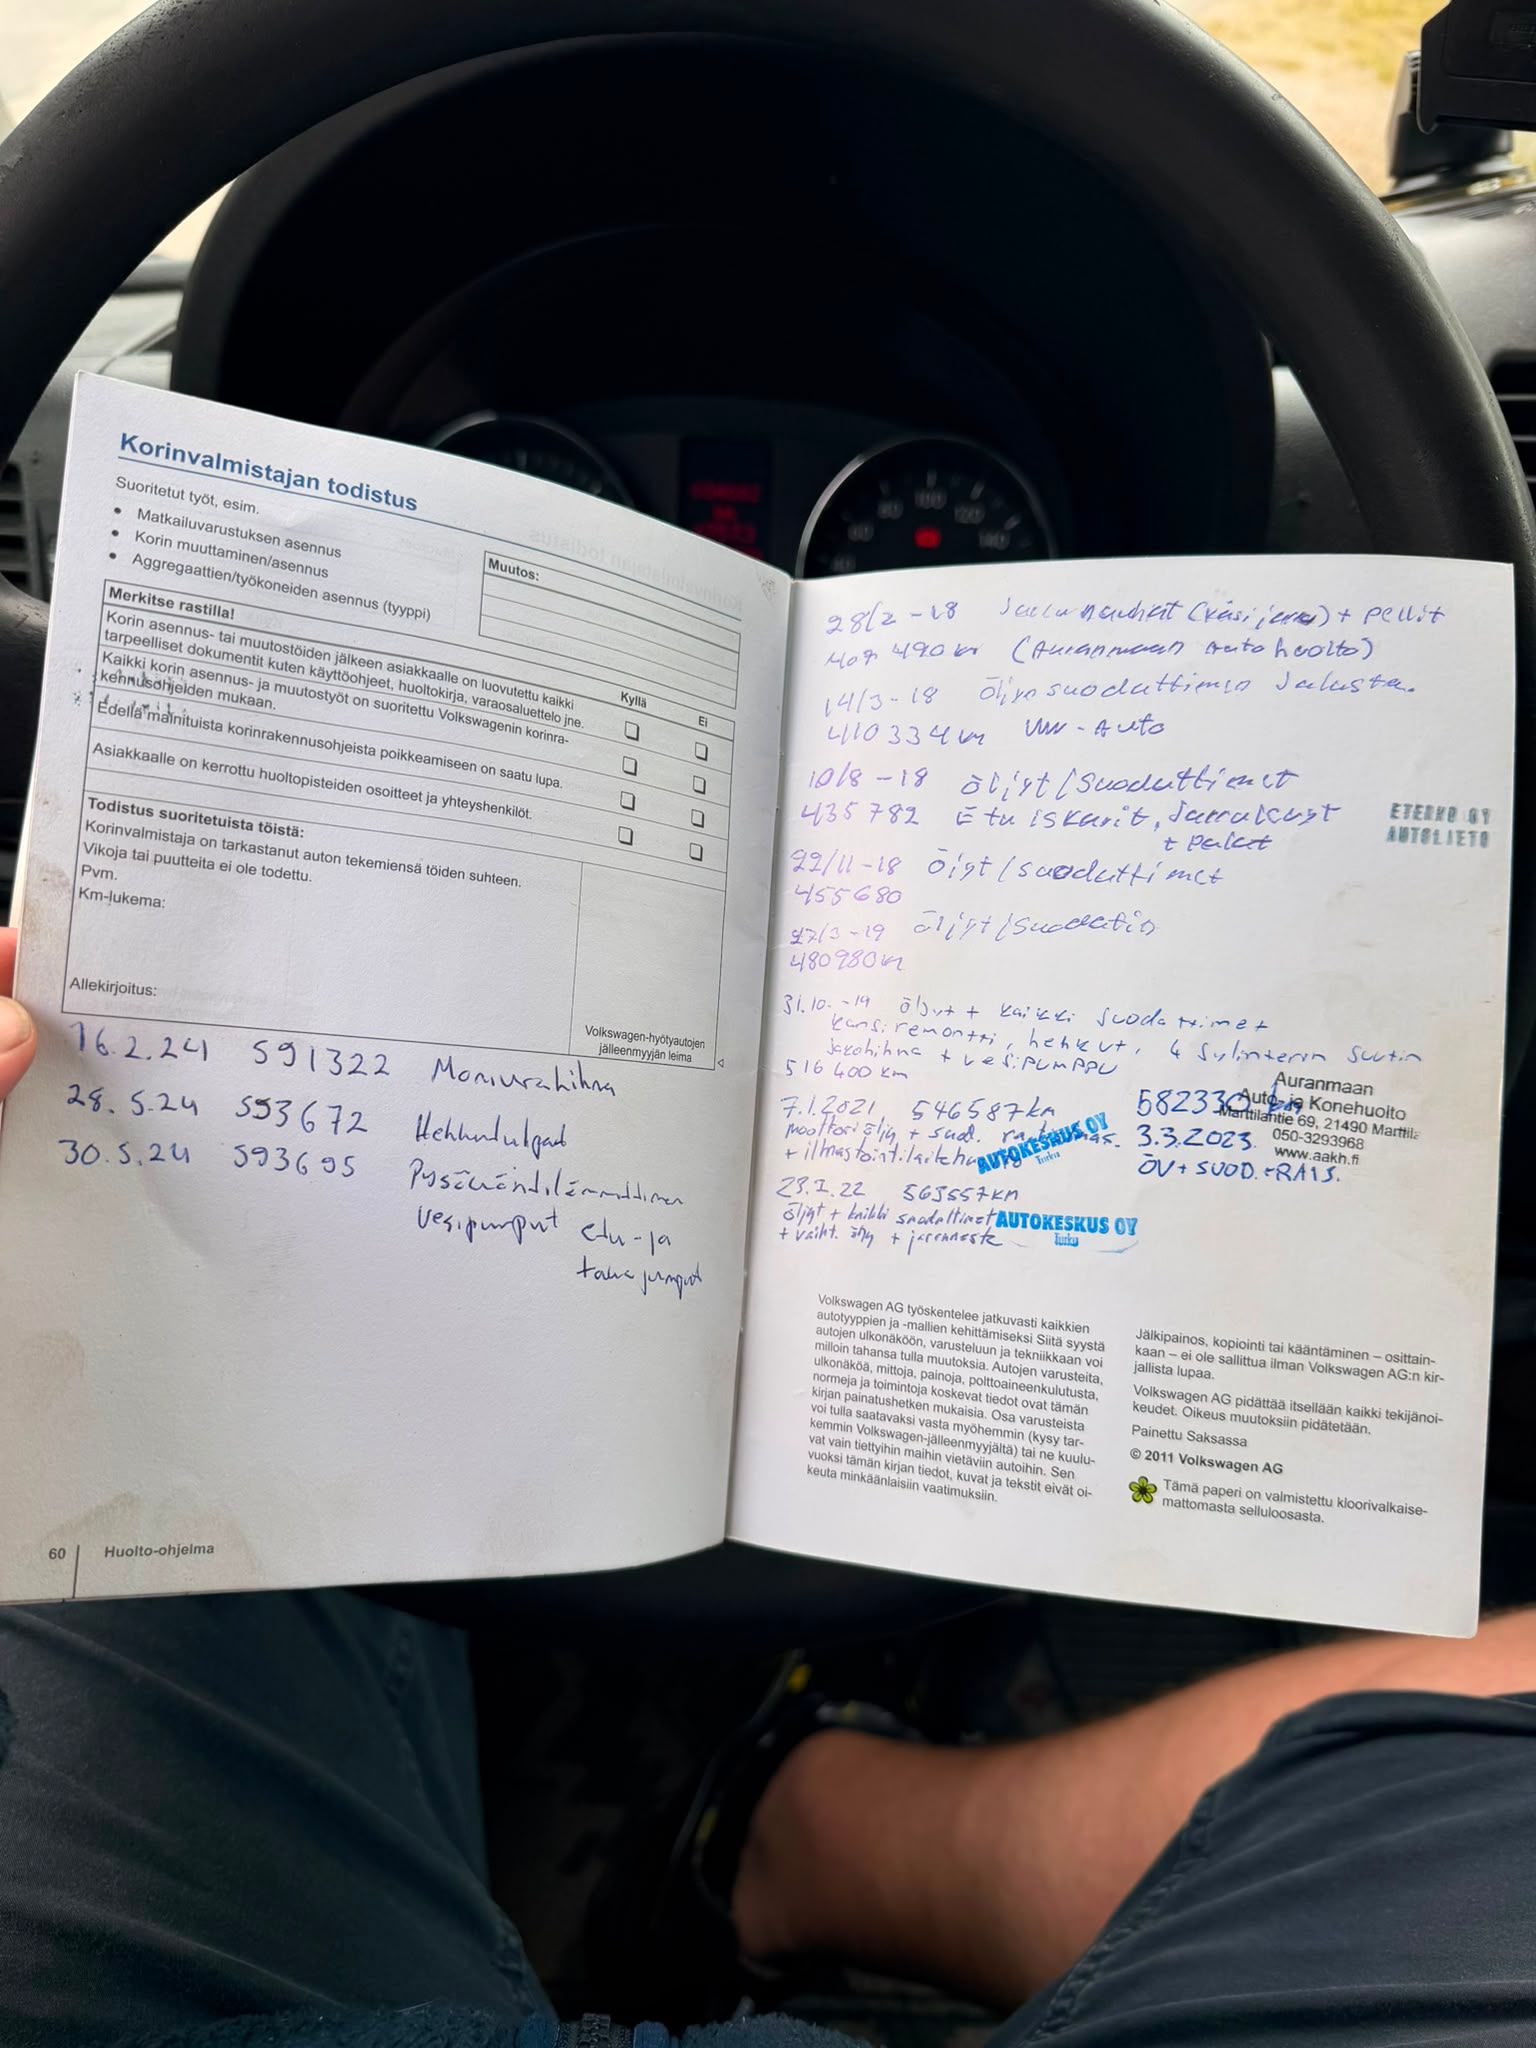 Korinvalmistajan todistus
Suoritetut työt, esim.
• Matkailuvarustuksen asennus
• Korin muuttaminen/asennus
• Aggregaattien/työkoneiden asennus (tyyppi)
Muutos:
Merkitse rastilla!
Kyllä
Ei
Korin asennus- tai muutostöiden jälkeen asiakkaalle on luovutettu kaikki
tarpeelliset dokumentit kuten käyttöohjeet, huoltokirja, varaosaluettelo jne.
Kaikki korin asennus- ja muutostyöt on suoritettu Volkswagenin korinra-
kennusohjeiden mukaan.
Edellä mainituista korinrakennusohjeista poikkeamiseen on saatu lupa.
Asiakkaalle on kerrottu huoltopisteiden osoitteet ja yhteyshenkilöt.
Todistus suoritetuista töistä:
Korinvalmistaja on tarkastanut auton tekemiensä töiden suhteen.
Vikoja tai puutteita ei ole todettu.
Pvm.
Km-lukema:
Allekirjoitus:
Volkswagen-hyötyautojen
jälleenmyyjän leima
16.2.24 591322 Moniurahihna
28.5.24 593672 Hehkutulpat
30.5.24 593695 Pysäköintilämmittimen
vesipumput etu- ja
60
Huolto-ohjelma
28/2 -18 (käsijarru) + pellit
409 490 km (Auranmaan Autohuolto)
14/3 -18 Öljynsuodattimen
410 334 km VW - Auto
10/8 -18 Öljyt/Suodattimet
435 782 Etu iskarit,
+ palat
ETERKO OY
AUTOLIETO
22/11 -18 Öljyt/suodattimet
455680
27/3 -19 Öljyt/Suodatin
480980 km
31.10. -19 öljyt + kaikki suodattimet
kansiremontti, hehkut, 4 sylinterin suutin
jakohihna + vesipumppu
516 400 km
7.1.2021 546587 km
moottoriöljy + suod.
AUTOKESKUS OY
Turku
23.2.22 563557 km
öljyt + kaikki suodattimet
+ vaiht. öljy + jarruneste
AUTOKESKUS OY
Turku
582330 km
3.3.2023
ÖV + SUOD. + RAIS.
Auranmaan
Auto- ja Konehuolto
Marttilantie 69, 21490 Marttila
050-3293968
www.aakh.fi
Volkswagen AG työskentelee jatkuvasti kaikkien
autotyyppien ja -mallien kehittämiseksi Siitä syystä
autojen ulkonäköön, varusteluun ja tekniikkaan voi
milloin tahansa tulla muutoksia. Autojen varusteita,
ulkonäköä, mittoja, painoja, polttoaineenkulutusta,
normeja ja toimintoja koskevat tiedot ovat tämän
kirjan painatushetken mukaisia. Osa varusteista
voi tulla saatavaksi vasta myöhemmin (kysy tar-
kemmin Volkswagen-jälleenmyyjältä) tai ne kuulu-
vat vain tiettyihin maihin vietäviin autoihin. Sen
vuoksi tämän kirjan tiedot, kuvat ja tekstit eivät oi-
keuta minkäänlaisiin vaatimuksiin.
Jälkipainos, kopiointi tai kääntäminen – osittain-
kaan – ei ole sallittua ilman Volkswagen AG:n kir-
jallista lupaa.
Volkswagen AG pidättää itsellään kaikki tekijänoi-
keudet. Oikeus muutoksiin pidätetään.
Painettu Saksassa
© 2011 Volkswagen AG
Tämä paperi on valmistettu kloorivalkaise-
mattomasta selluloosasta.